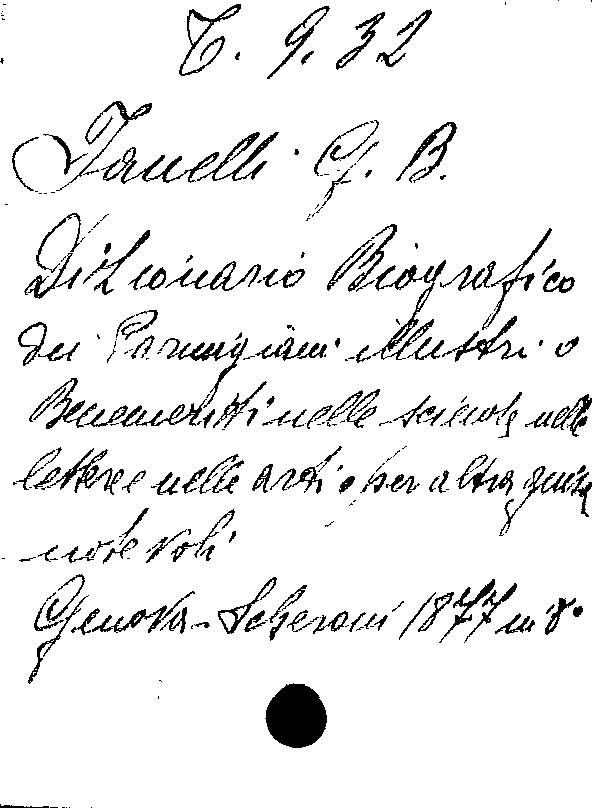 C. 9. 32
Janelli G. B.
Dizionario Biografico
dei Parmigiani illustri o
Benemeriti nelle scienze nelle
lettere e nelle arti o per altra guisa
notevoli
Genova - Schenoni 1877 in 8°